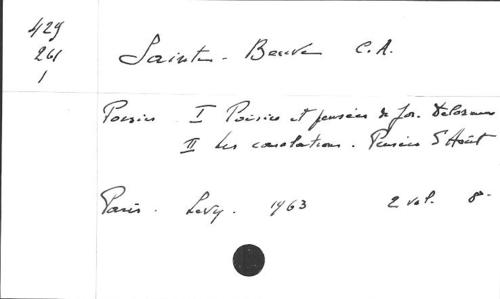 429
261
1
Sainte-Beuve C.A.
Poesies I Poésies et pensées de Jos. Delorme
II Les consolations. Pensées d'Août
Paris. Levy. 1963 2 vol. 8°